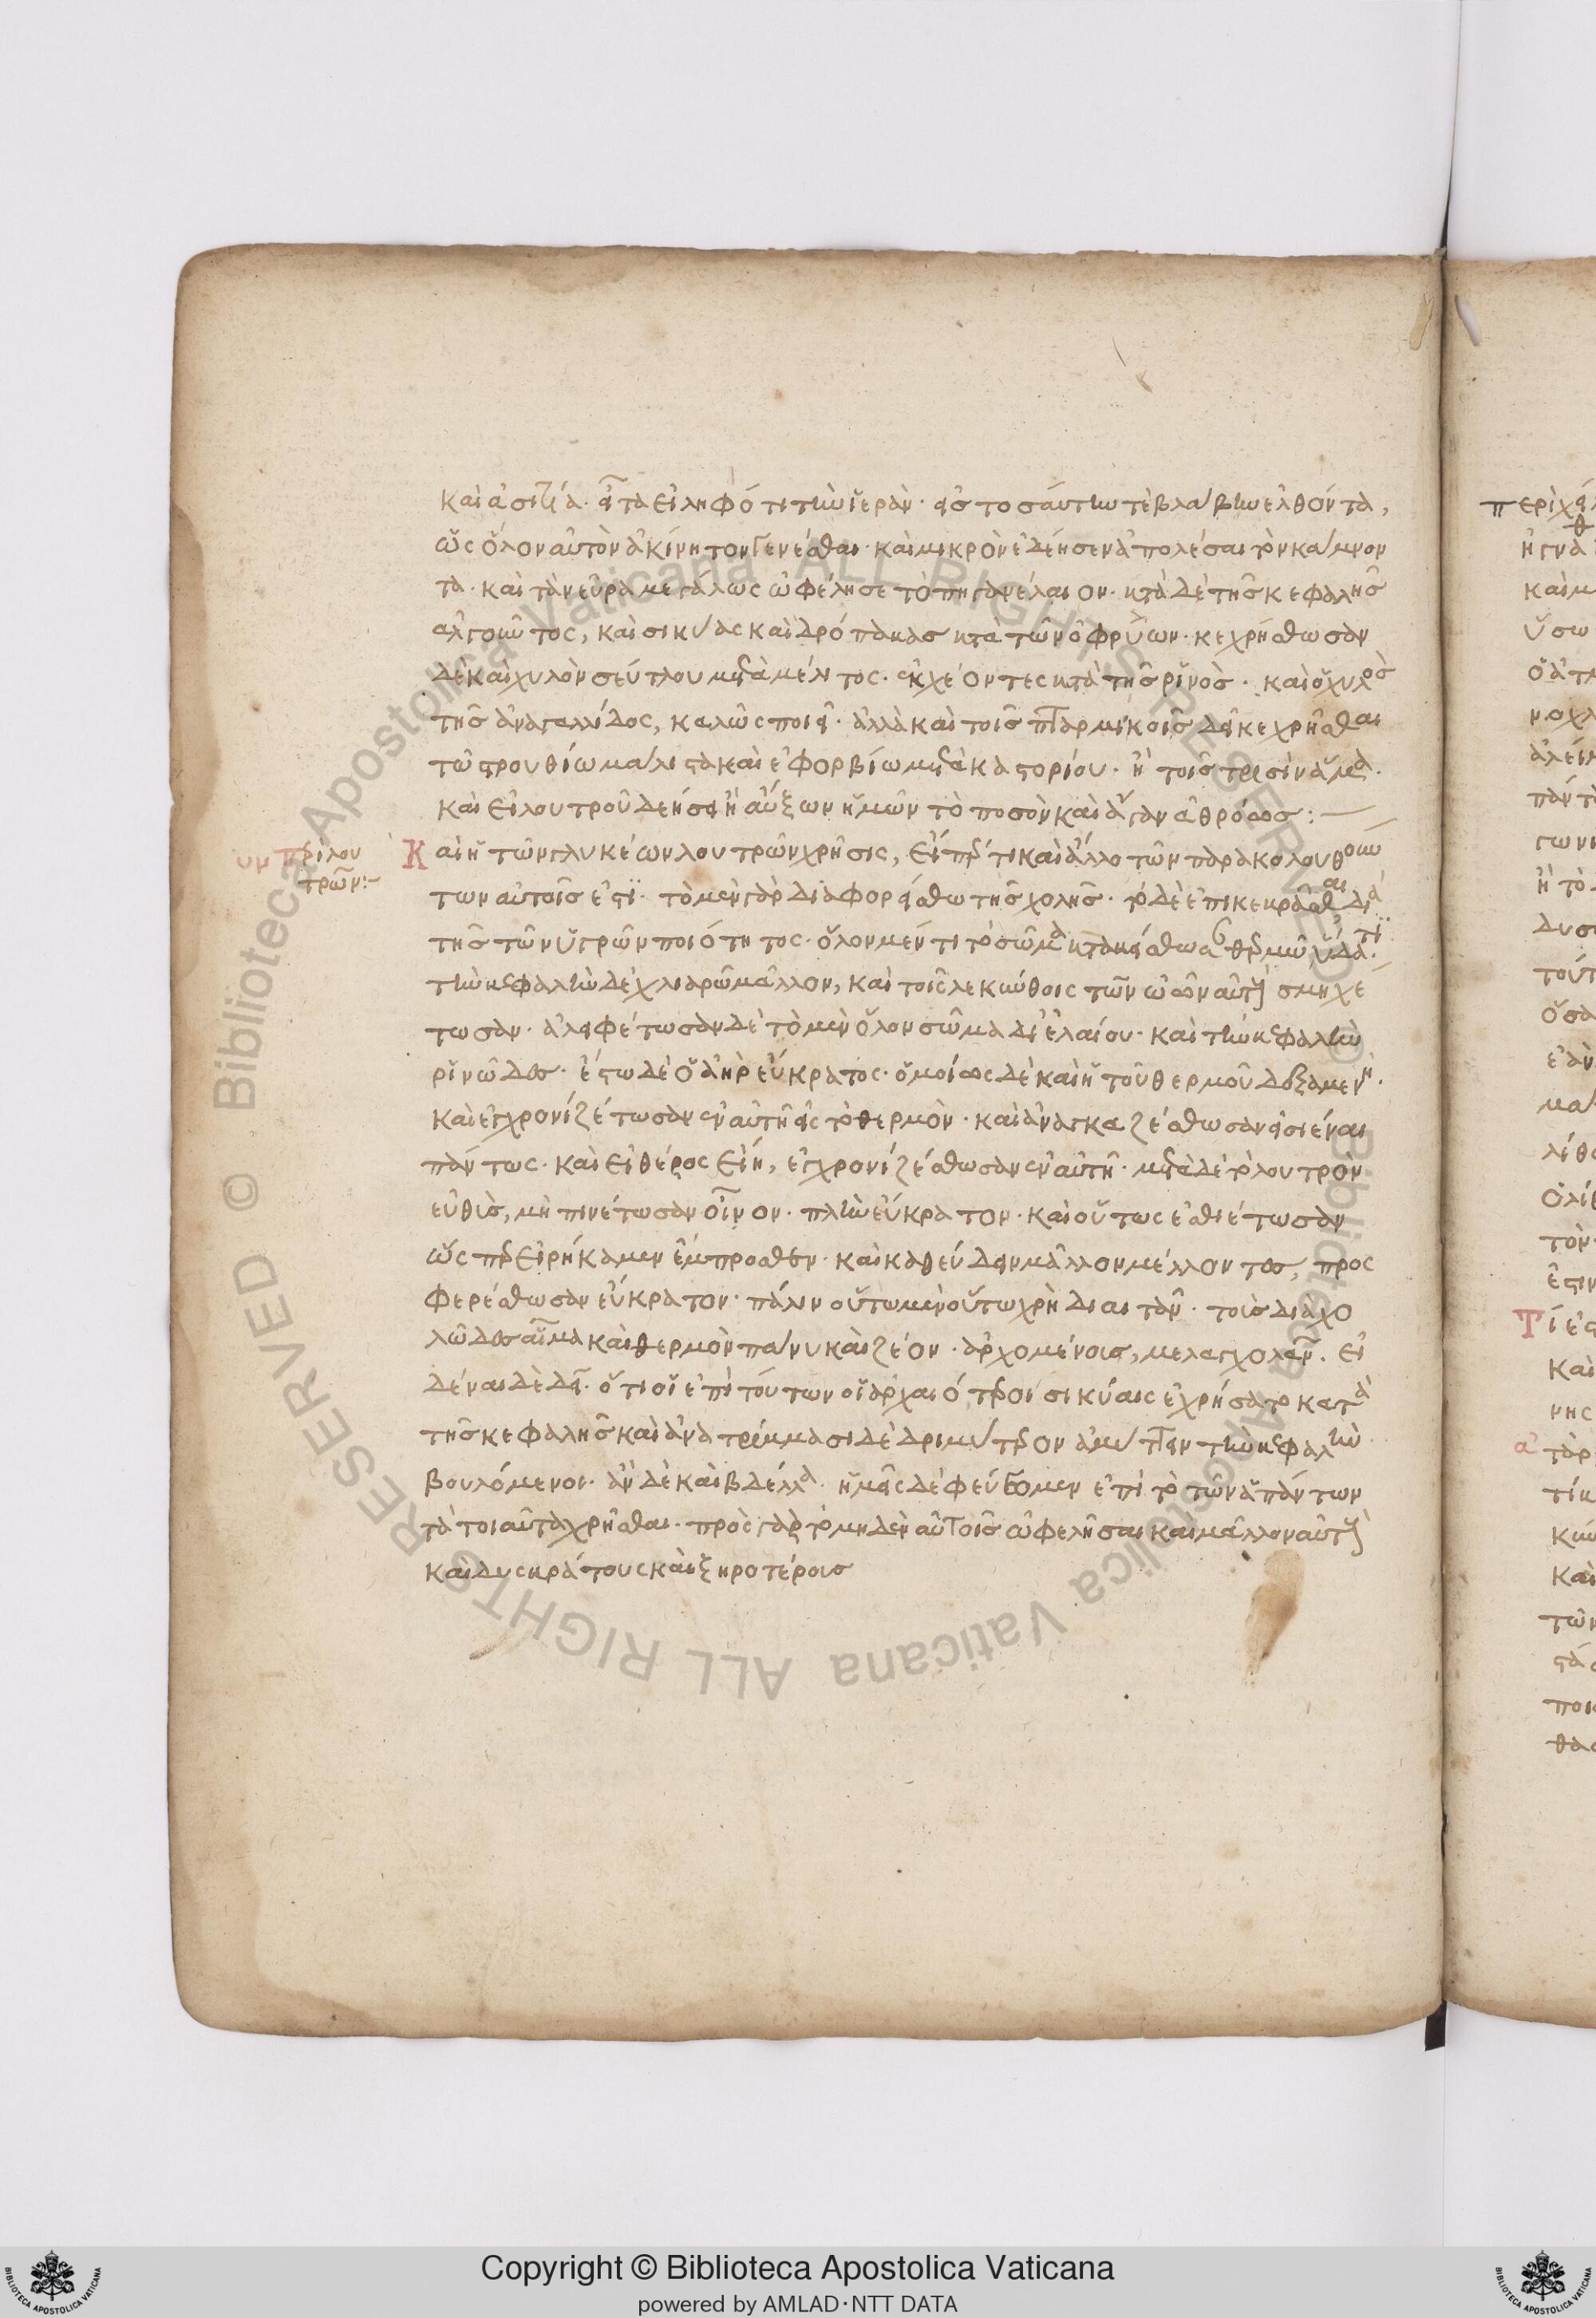 καὶ ἀσιτία. εἶτα εἰληφότι τὴν ἱερὰν. εἰς τοσαύτην τὲ βλάβην ἐλθόντα,
ὡς ὅλον αὐτὸν ἀκίνητον γενέσθαι. καὶ μικρὸν ἐδέησεν ἀπολέσαι τὸν κάμνον
τα. καὶ τὰ νεῦρα μεγάλως ὠφέλησε τὸ πήγανέλαιον. κατὰ δὲ τῆς κεφαλῆς
ἀλγοῦντος, καὶ σικύας καὶ δρόπακας κατὰ τῶν ὀφρύων. κεχρήσθωσαν
δὲ καὶ χυλὸν σεύτλου μετὰ μέλιτος. ἐκχέοντες κατὰ τῆς ρινὸς. καὶ ὁ χυλὸς
τῆς ἀναγαλλίδος, καλῶς ποιεῖ. ἀλλὰ καὶ τοῖς πταρμικοῖς δεῖ κεχρῆσθαι
τῶ στρουθίω μάλιστα καὶ εὐφορβίω μετὰ καστορίου. ἢ τοῖς τρισὶν ἅμα.
καὶ εἰ λουτροῦ δεήσει ἢ αὔξων ἡμῶν τὸ ποσὸν καὶ ἄγαν ἀθρόως:
περὶ λου
τρῶν:
Καὶ ἡ τῶν γλυκέων λουτρῶν χρῆσις, εἴπερ τι καὶ ἄλλο τῶν παρακολουθούν
των αὐτοῖς ἐστὶ. τὸ μὲν γὰρ διαφορείσθω τῆς χολῆς. τὸ δὲ ἐπικεκρᾶσθαι διὰ
τῆς τῶν ὑγρῶν ποιότητος. ὅλον μέν τι τὸ σῶμα θερμῶ ὕδατι.
τὴν κεφαλὴν δὲ χλιαρῶ μᾶλλον, καὶ τοῖς λεκύθοις τῶν ὠῶν αὐτὴν σμηχέ
τωσαν. ἀλειφέτωσαν δὲ τὸ μὲν ὅλον σῶμα δι' ἐλαίου. καὶ τὴν κεφαλὴν
ἔστω δὲ ὁ ἀὴρ εὔκρατος. ὁμοίως δὲ καὶ ἡ τοῦ θερμοῦ δεξαμενὴ.
καὶ ἐγχρονιζέτωσαν ἐν αὐτῆ εἰς τὸ θερμὸν. καὶ ἀναγκαζέσθωσαν εἰσιέναι
πάντως. καὶ εἰ θέρος εἴη, ἐγχρονιζέσθωσαν ἐν αὐτῆ. μετὰ δὲ τὸ λουτρὸν
εὐθὺς, μὴ πινέτωσαν οἶνον. πλὴν εὔκρατον. καὶ οὕτως ἐσθιέτωσαν
ὥσπερ εἰρήκαμεν ἔμπροσθεν. καὶ καθεύδειν μᾶλλον μέλλοντες, προς
φερέσθωσαν εὔκρατον. πάλιν οὕτω μὲν οὕτω χρὴ διαιτᾶν. τοὺς διὰ χο
λῶδες αἷμα καὶ θερμὸν πάνυ καὶ ζέον. ἀρχομένοις, μελαγχολᾶν. εἰ
δέναι δὲ δεῖ. ὅτι οἱ ἐπὶ τούτων οἱ ἀρχαιότεροι σικύαις ἐχρήσατο κατὰ
τῆς κεφαλῆς καὶ ἀνατρίμμασι δὲ δριμύτερον ἀμύττειν τὴν κεφαλὴν
βουλόμενοι. ἀν δὲ καὶ βδέλλα. ἡμεῖς δὲ φεύγομεν ἐπὶ τὸ τῶν ἁπάντων
τὰ τοιαῦτα χρῆσθαι. πρὸς γὰρ τὸ μηδὲν αὐτοῖς ὠφελῆσαι καὶ μᾶλλον αὐτὴν
καὶ δυσκράτους καὶ ξηροτέροις
Copyright © Biblioteca Apostolica Vaticana
powered by AMLAD·NTT DATA